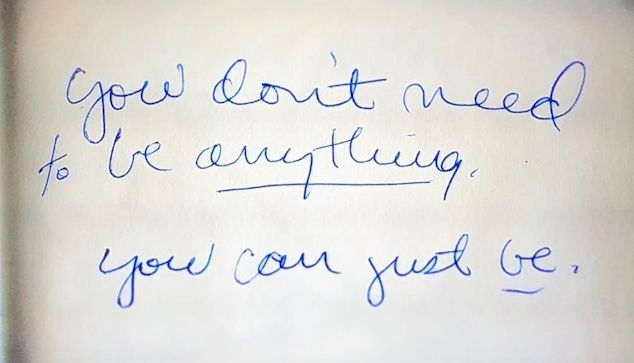 you don't need
to be anything.
you can just be.